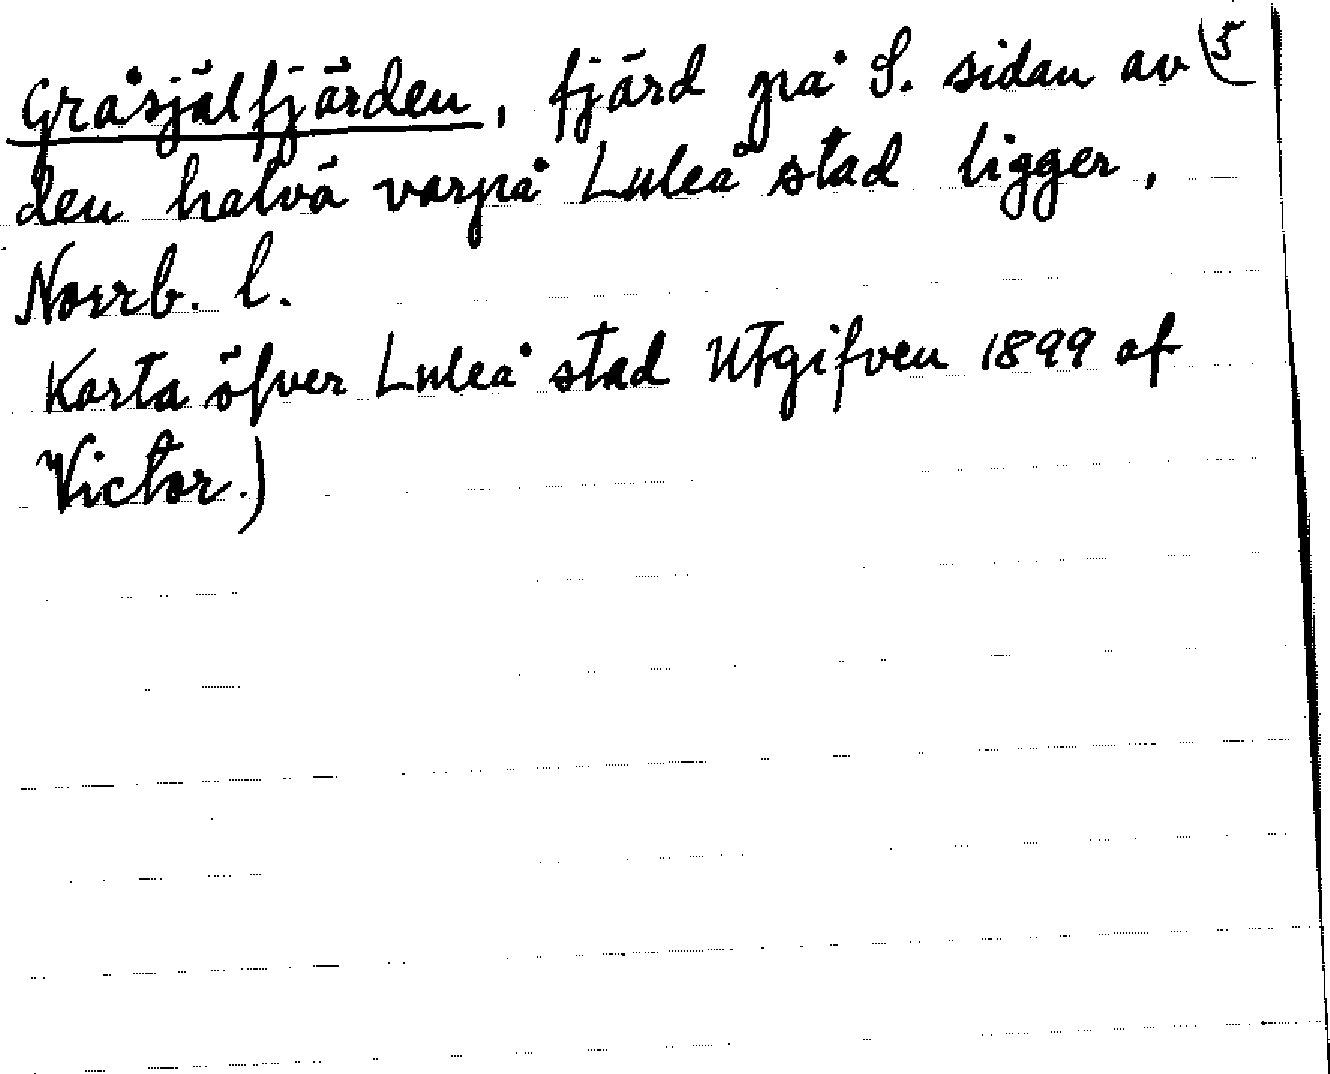 Gråsjälfjärden, fjärd på S. sidan av 5
den halvö varpå Luleå stad ligger,
Norrb. l.
Karta öfver Luleå stad Utgifven 1899 af
Victor.)